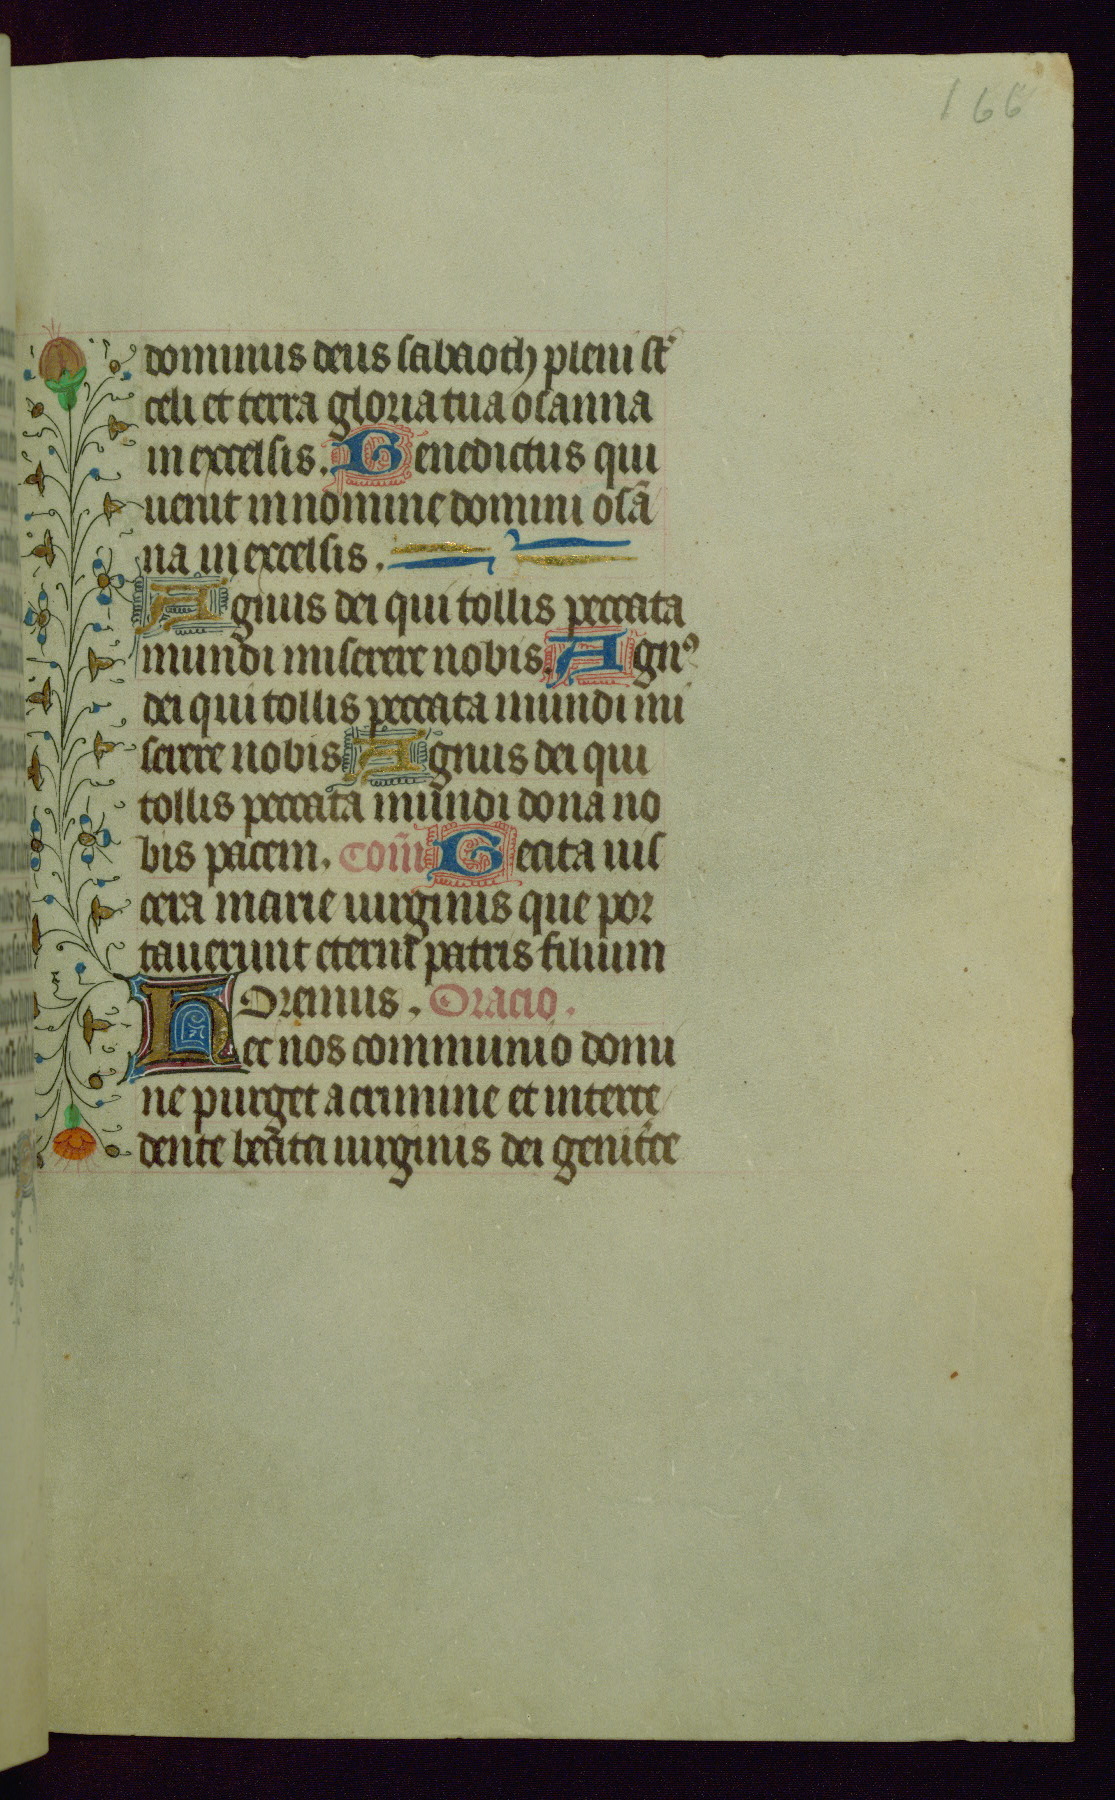 166
dominus deus sabaoth pleni st̃
celi et terra gloria tua osanna
in excelsis. Benedictus qui
uenit in nomine domini osã
na in excelsis.
Agnus dei qui tollis peccata
mundi miserere nobis. Agnꝰ
dei qui tollis peccata mundi mi
serere nobis Agnus dei qui
tollis peccata mundi dona no
bis pacem. Com̃i Beata uis
cera marie uirginis que por
tauerunt eterni patris filium
Oremus. Oracio.
Hec nos communio domi
ne purget a crimine et interce
dente beata uirginis dei genitͥce